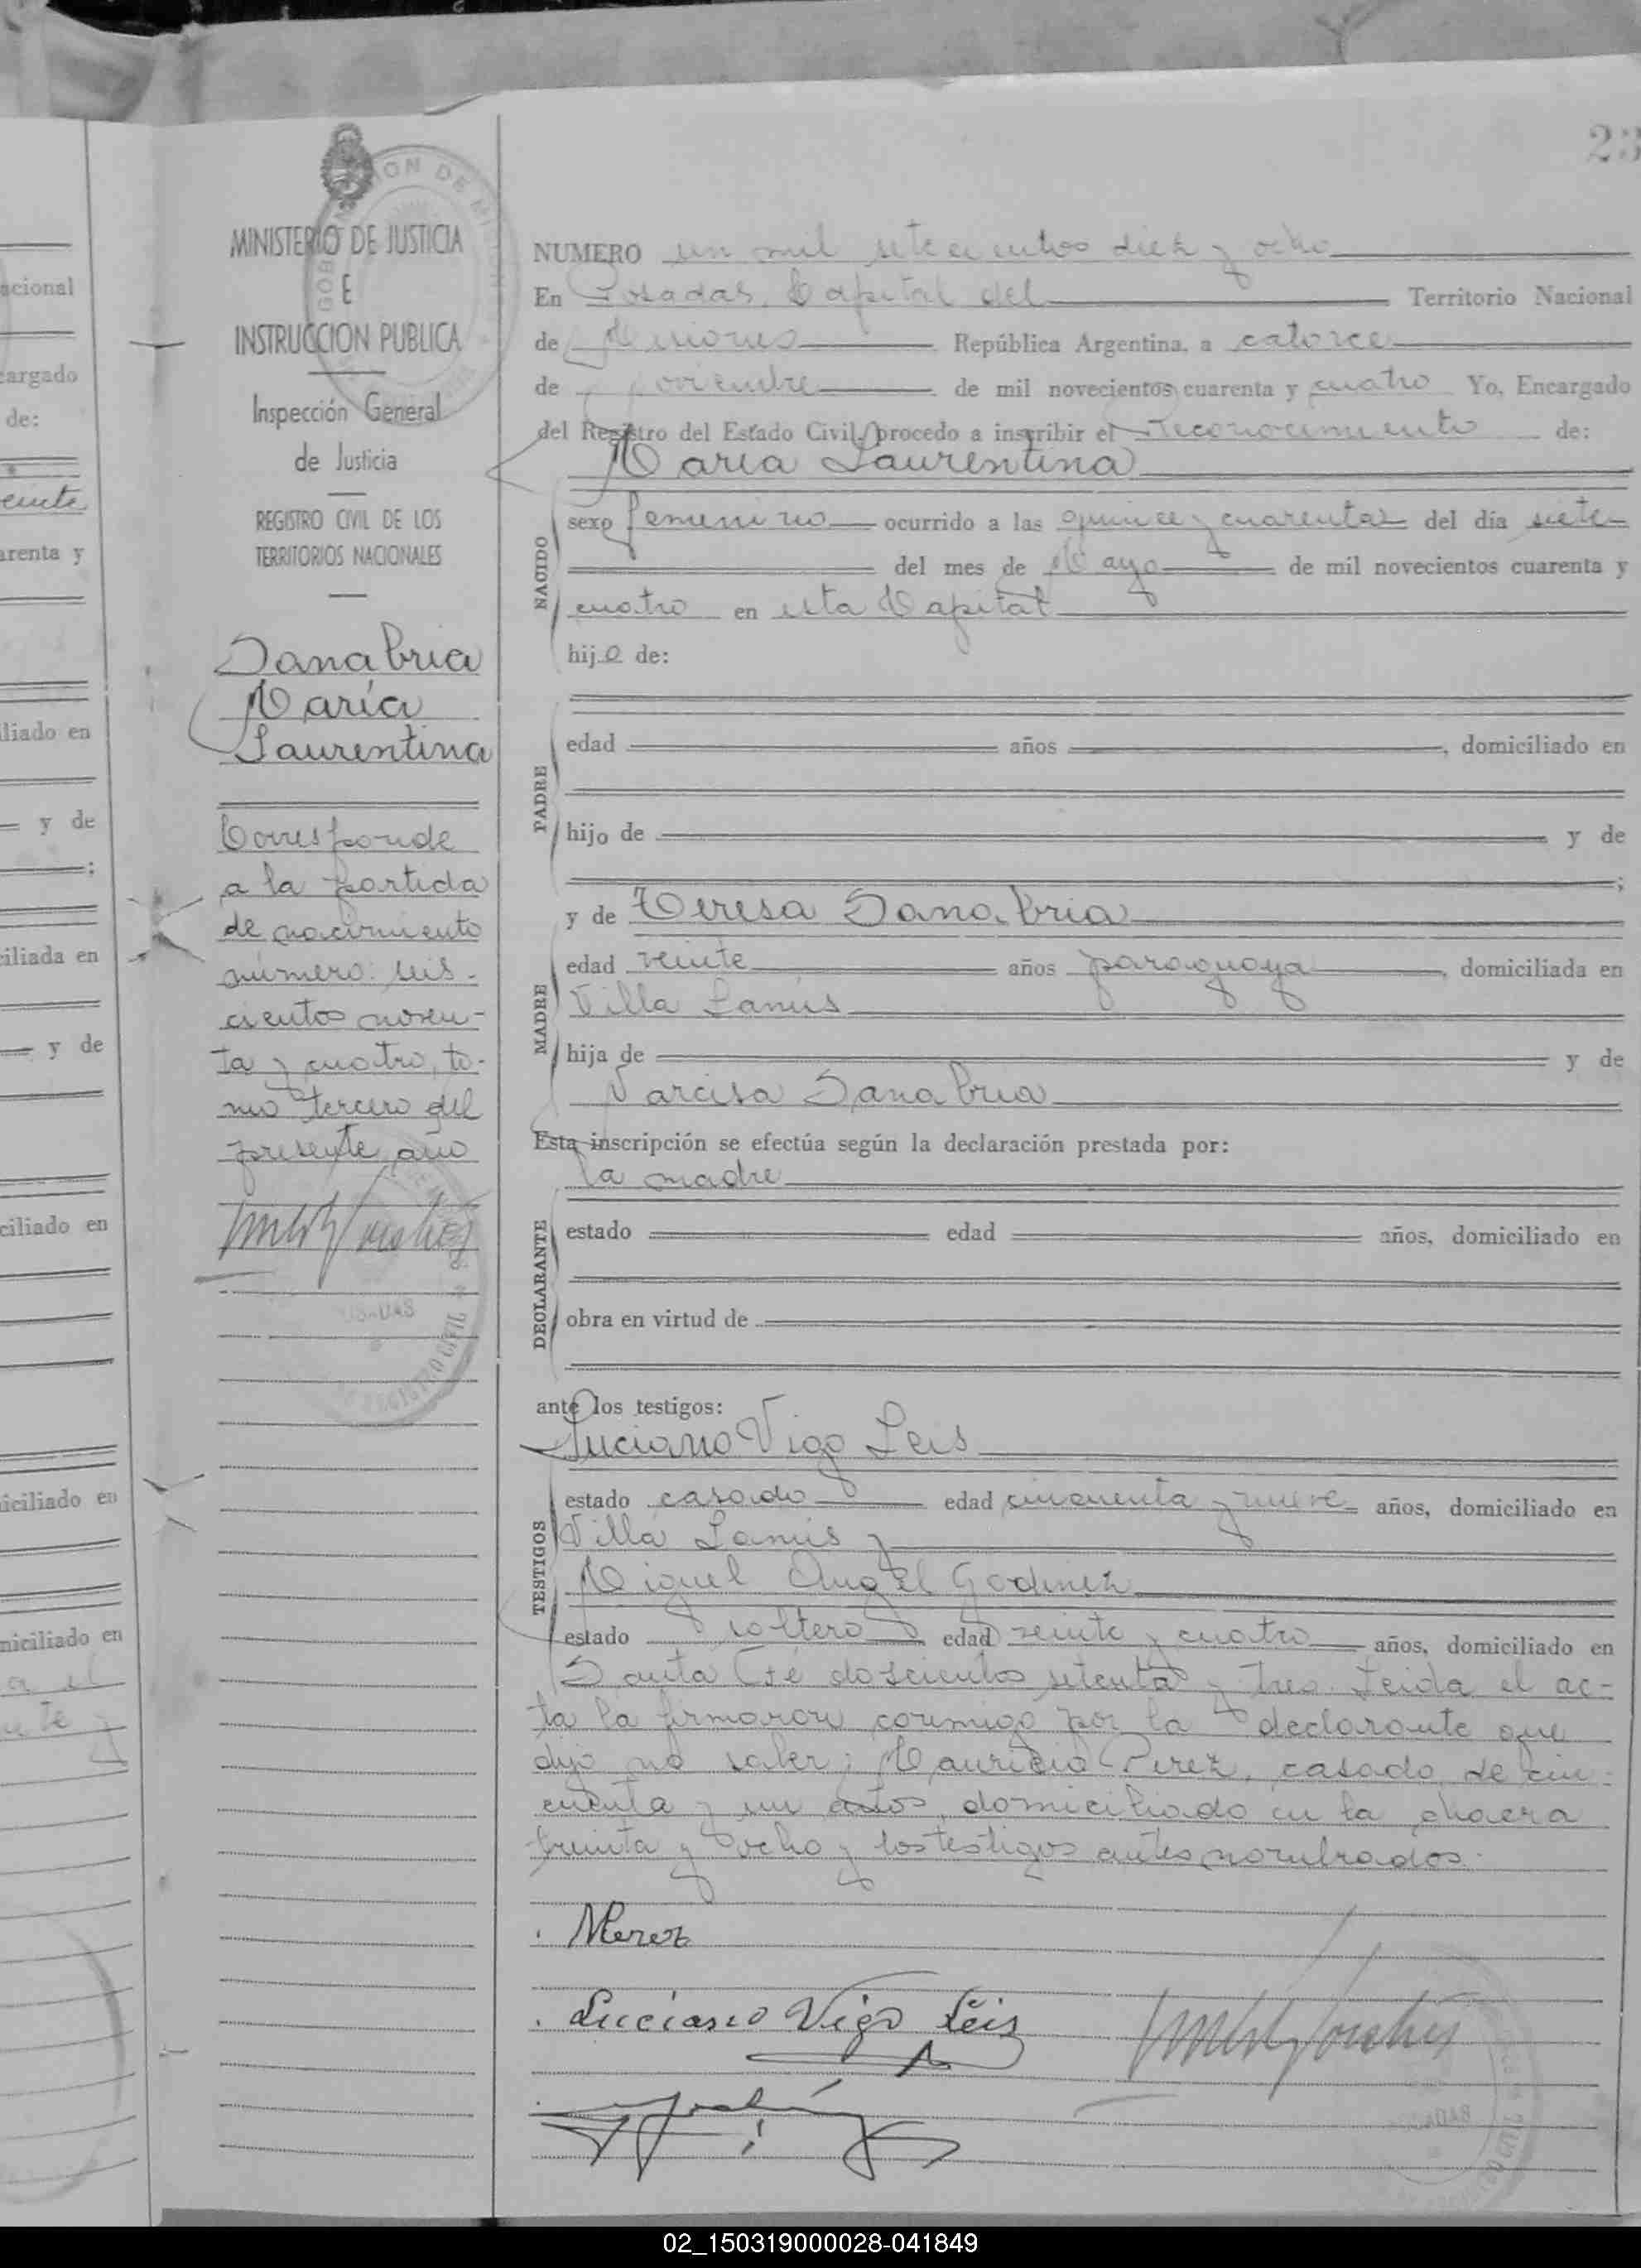 23
MINISTERIO DE JUSTICIA
E
INSTRUCCION PUBLICA
Inspección General
de Justicia
REGISTRO CIVIL DE LOS
TERRITORIOS NACIONALES
Sanabria
María
Laurentina
Corresponde
a la partida
de nacimiento
número: seis-
cientos noven-
ta y cuatro, to-
mo tercero del
presente año
POSADAS
NUMERO un mil setecientos diez y ocho
En Posadas, Capital del Territorio Nacional
de Misiones República Argentina, a catorce
de noviembre de mil novecientos cuarenta y cuatro Yo, Encargado
del Registro del Estado Civil, procedo a inscribir el Reconocimiento de:
María Laurentina
NACIDO
sexo femenino ocurrido a las quince y cuarenta del día siete
del mes de Mayo de mil novecientos cuarenta y
cuatro en esta Capital
hija de:
PADRE
edad años , domiciliado en
hijo de y de
;
y de Teresa Sanabria
MADRE
edad veinte años paraguaya , domiciliada en
Villa Lanús
hija de y de
Narcisa Sanabria
Esta inscripción se efectúa según la declaración prestada por:
la madre
DECLARANTE
estado edad años, domiciliado en
obra en virtud de
ante los testigos:
Luciano Vigo Leis
TESTIGOS
estado casado edad cincuenta y nueve años, domiciliado en
Villa Lanús y
Miguel Angel Godinez
estado soltero edad veinte y cuatro años, domiciliado en
Santa Fé doscientos setenta y tres. Leida el ac-
ta la firmaron conmigo por la declarante que
dijo no saber; Mauricio Perez, casado, de cin-
cuenta y un años, domiciliado en la chacra
treinta y ocho y los testigos antes nombrados.
MPerez
Luciano Vigo Leis
cional
cargado
de:
veinte
arenta y
liado en
y de
;
ciliada en
y de
ciliado en
niciliado en
niciliado en
02_150319000028-041849